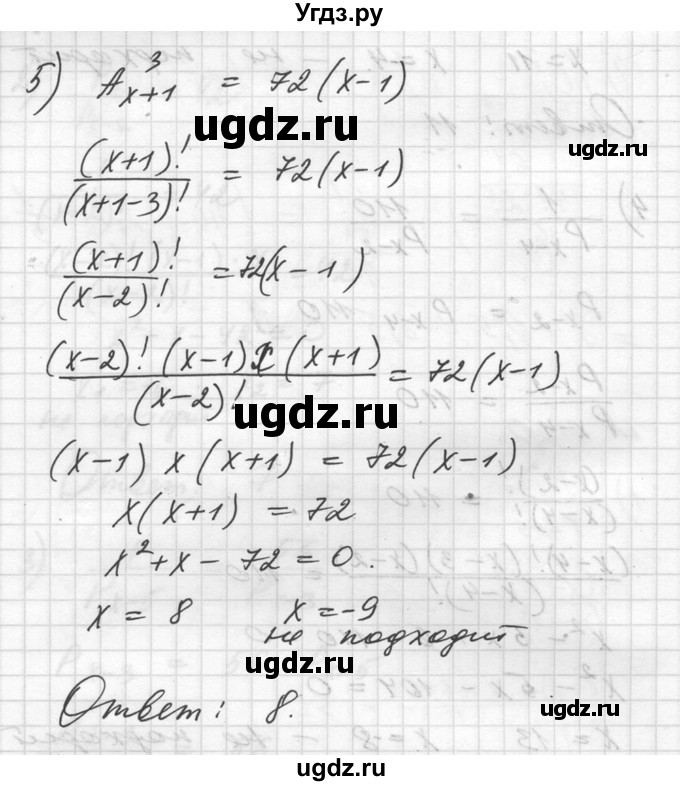 Угдз.ру
5) A³ₓ₊₁ = 72(x-1)
ugdz.ru
ugdz.ru
(x+1)!/(x+1-3)! = 72(x-1)
(x+1)!/(x-2)! = 72(x-1)
ugdz.ru
(x-2)! (x-1) x (x+1)/(x-2)! = 72(x-1)
ugdz.ru
(x-1) x (x+1) = 72(x-1)
x(x+1) = 72
x² + x - 72 = 0.
x = 8 x = -9
не подходит
ugdz.ru
Ответ: 8.
ugdz.ru
ugdz.ru